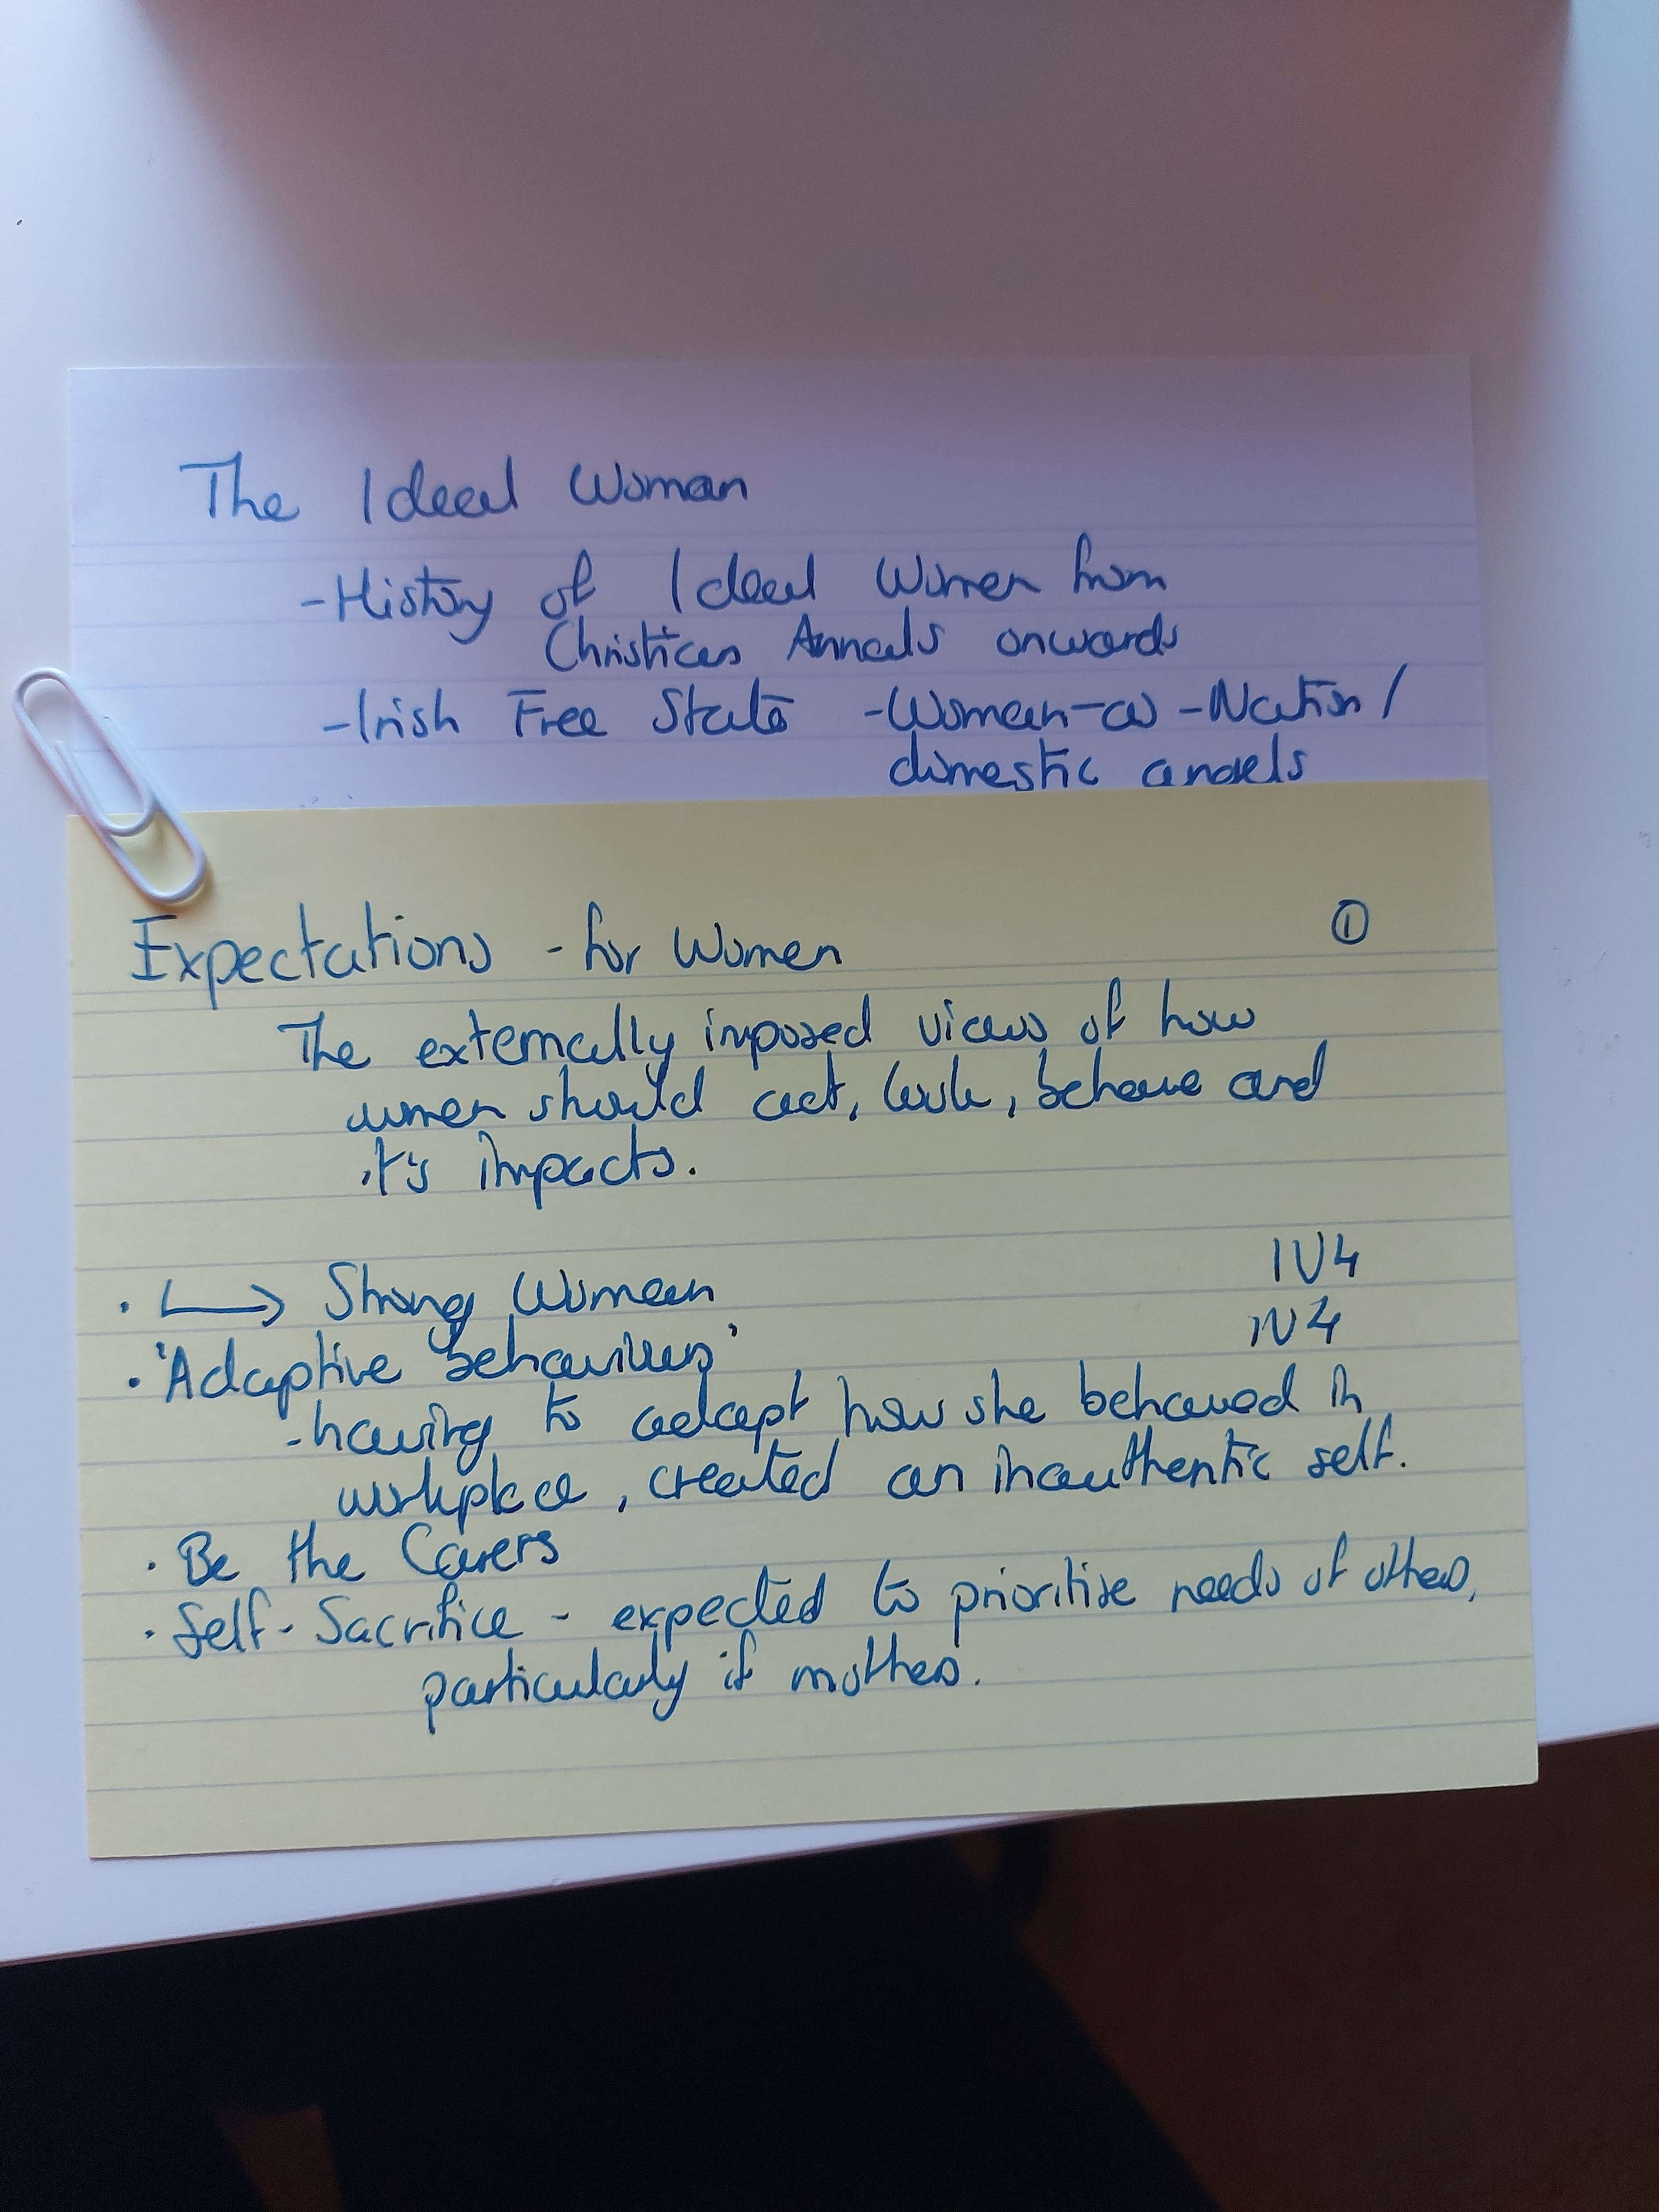 The Ideal Woman
-History of Ideal Women from
Christian Annals onwards
-Irish Free State -Woman-as-Nation/
domestic angels
Expectations - for Women
①
The externally imposed views of how
women should act, look, behave and
it's impacts.
· ↳ Strong Woman IV4
· 'Adaptive behaviours' IV4
-having to adapt how she behaved in
workplace, created an inauthentic self.
· Be the Carers
· Self-Sacrifice - expected to prioritise needs of others,
particularly if mothers.